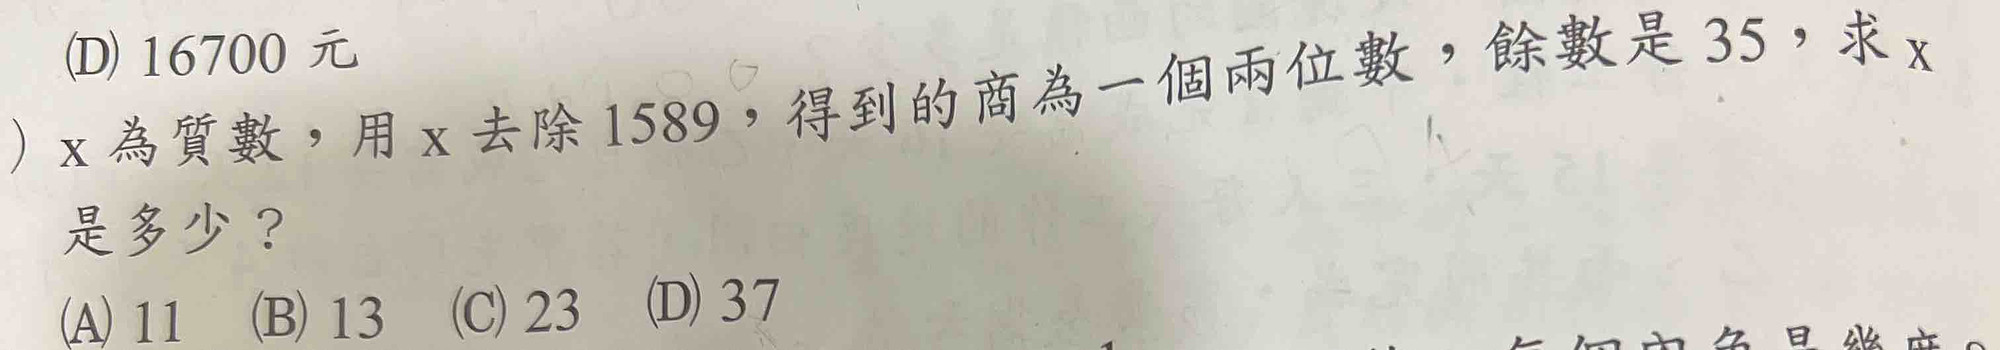 (D) 16700 元
) x 為質數，用 x 去除 1589，得到的商為一個兩位數，餘數是 35，求 x
是多少？
(A) 11 (B) 13 (C) 23 (D) 37